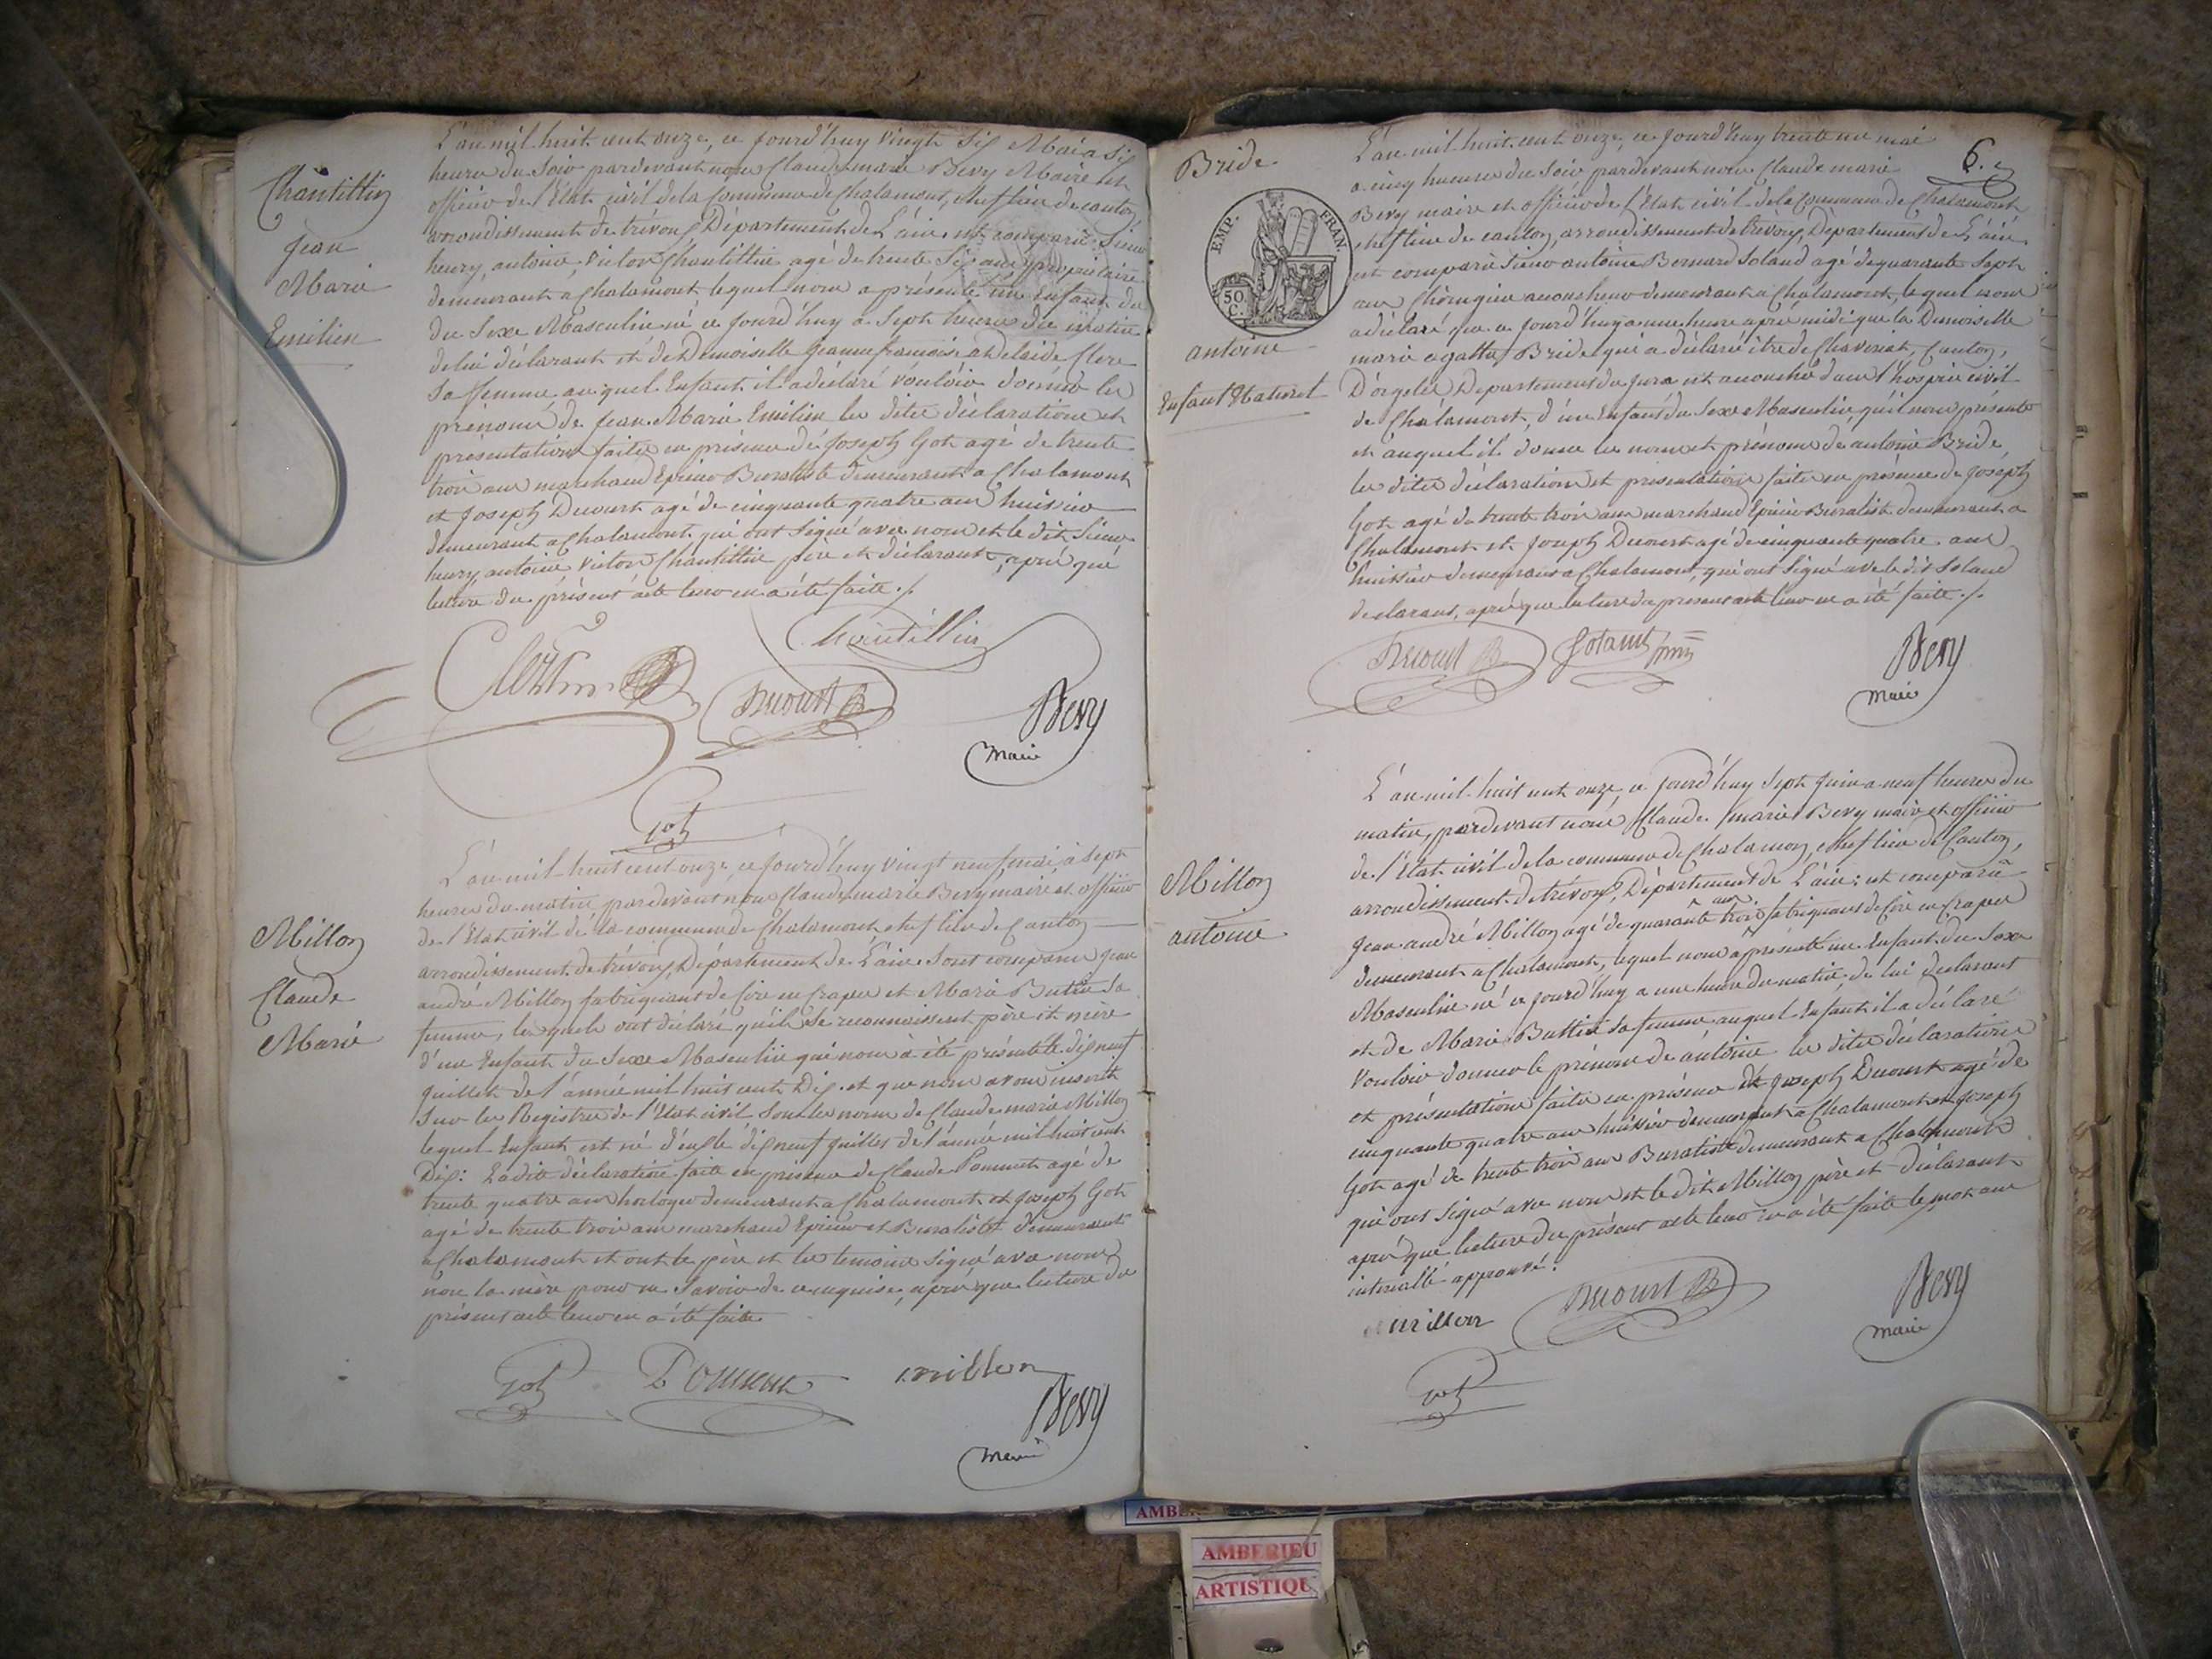 Chantillin
Jean
Marie
Emilien
L'an mil huit cent onze, ce jourd'huy vingt six Mai a six
heure du Soir pardevant nous Claude marie Bevy Maire et
officier de l'Etat civil de la Commune de Chalamont, Chef lieu de canton,
arrondissement de trévoux, Département de L'ain, est comparu Sieur
henry, antoine, Victor Chantillin agé de trente Six ans propriétaire
demeurant a Chalamont lequel nous a présenté un Enfant du
du Sexe Masculin né ce jourd'huy a Sept heures du matin
de lui déclarant et de Demoiselle Jeanne françoise adelaide Clerc
Sa femme, auquel Enfant il a déclaré vouloir donner les
prénoms de Jean Marie Emilien les dites déclaration et
présentation faites en présence de Joseph Got agé de trente
trois ans marchand Epicier Buraliste demeurant a Chalamont
et Joseph Ducourt agé de cinquante quatre ans huissier
demeurant a Chalamont qui ont Signé avec nous et le dit Sieur
henry, antoine Victor Chantillin père et déclarant, après que
lecture du présent acte leur en a été faite ./.
Chantillin
Ducourt
Bevy
Maire
Got
Millon
Claude
Marie
L'an mil huit cent onze, ce jourd'huy vingt neuf mai, à Sept
heures du matin, pardevant nous Claude marie Bevy maire, et officier
de l'Etat civil de la commune de Chalamont chef lieu de Canton
arrondissement de trévoux, Département de L'ain. Sont comparu Jean
andré Millon fabriquant de Cire en Crapen et Marie Buttin Sa
femme, lesquels ont déclaré qu'ils Se reconnoissent père et mère
d'un Enfant du Sexe Masculin qui nous à été présenté le dix neuf
Juillet de l'année mil huit cent Dix. et que nous avons inscrit
Sur les Registres de l'Etat civil Sous les noms de Claude marie Millon
lequel Enfant est né d'eux le dix neuf juillet de l'année mil huit cent
Dix: Ladite déclaration faite en présence de Claude Pommet agé de
trente quatre ans horloger demeurant a Chalamont et Joseph Got
agé de trente trois ans marchand Epicier et Buraliste demeurant
a Chalamont et ont le père et les temoins Signé avec nous
non la mère pour ne Savoir de ce requise, après que lecture du
présent acte leur en a été faite
Got Pommet millon
Bevy
Maire
6.e
EMP. FRAN.
50 C.
Bride
antoine
Enfant Naturel
L'an mil huit cent onze, ce jourd'huy trente un mai
a cinq heures du Soir pardevant nous Claude marie
Bevy maire et officier de l'Etat civil de la Commune de Chalamont
chef lieu de canton, arrondissement de trévoux, Département de L'ain,
est comparu Sieur antoine Bernard Soland agé de quarante Sept
ans Chirurgien accoucheur demeurant a Chalamont, lequel nous
a déclaré que ce jourd'huy a une heure après midi que la Demoiselle
marie agathe Bride qui a déclaré être de Chaveriat, Canton,
D'orgelet Département du Jura est accouchée dans l'hospice civil
de Chalamont, d'un Enfant du Sexe Masculin, qu'il nous présente
et auquel il donne les noms et prénoms de antoine Bride
les dites déclaration et présentation faites en présence de Joseph
Got agé de trente trois ans marchand Epicier Buraliste demeurant a
Chalamont et Joseph Ducourt agé de cinquante quatre ans
huissier demeurant a Chalamont, qui ont Signé avec le dit Soland
declarant, après que lecture du present acte leur en a été faite ./.
Ducourt Soland
Bevy
Maire
Millon
antoine
L'an mil huit cent onze, ce jourd'huy Sept Juin a neuf heures du
matin, pardevant nous Claude marie Bevy maire et officier
de l'Etat civil de la commune de Chalamon, Chef lieu de Canton,
arrondissement de trévoux, Département de L'ain: est comparu
ans
Jean andré Millon agé de quarante trois fabriquant de Cire en Crapen
demeurant a Chalamont, lequel nous a présenté un Enfant du Sexe
Masculin né ce jourd'huy a une heure du matin, de lui declarant
et de Marie Buttin Sa femme, auquel Enfant il a déclaré
vouloir donner le prénom de antoine les dites déclaration
et présentation faites en présence de Joseph Ducourt agé de
cinquante quatre ans huissier demeurant a Chalamont et Joseph
Got agé de trente trois ans Buraliste demeurant a Chalamont
qui ont Signé avec nous et le dit Millon père et déclarant
après que lecture du présent acte leur en a été faite le mot ans
interallé approuvé.
millon Ducourt
Bevy
Maire
Got
AMBERIEU
ARTISTIQU